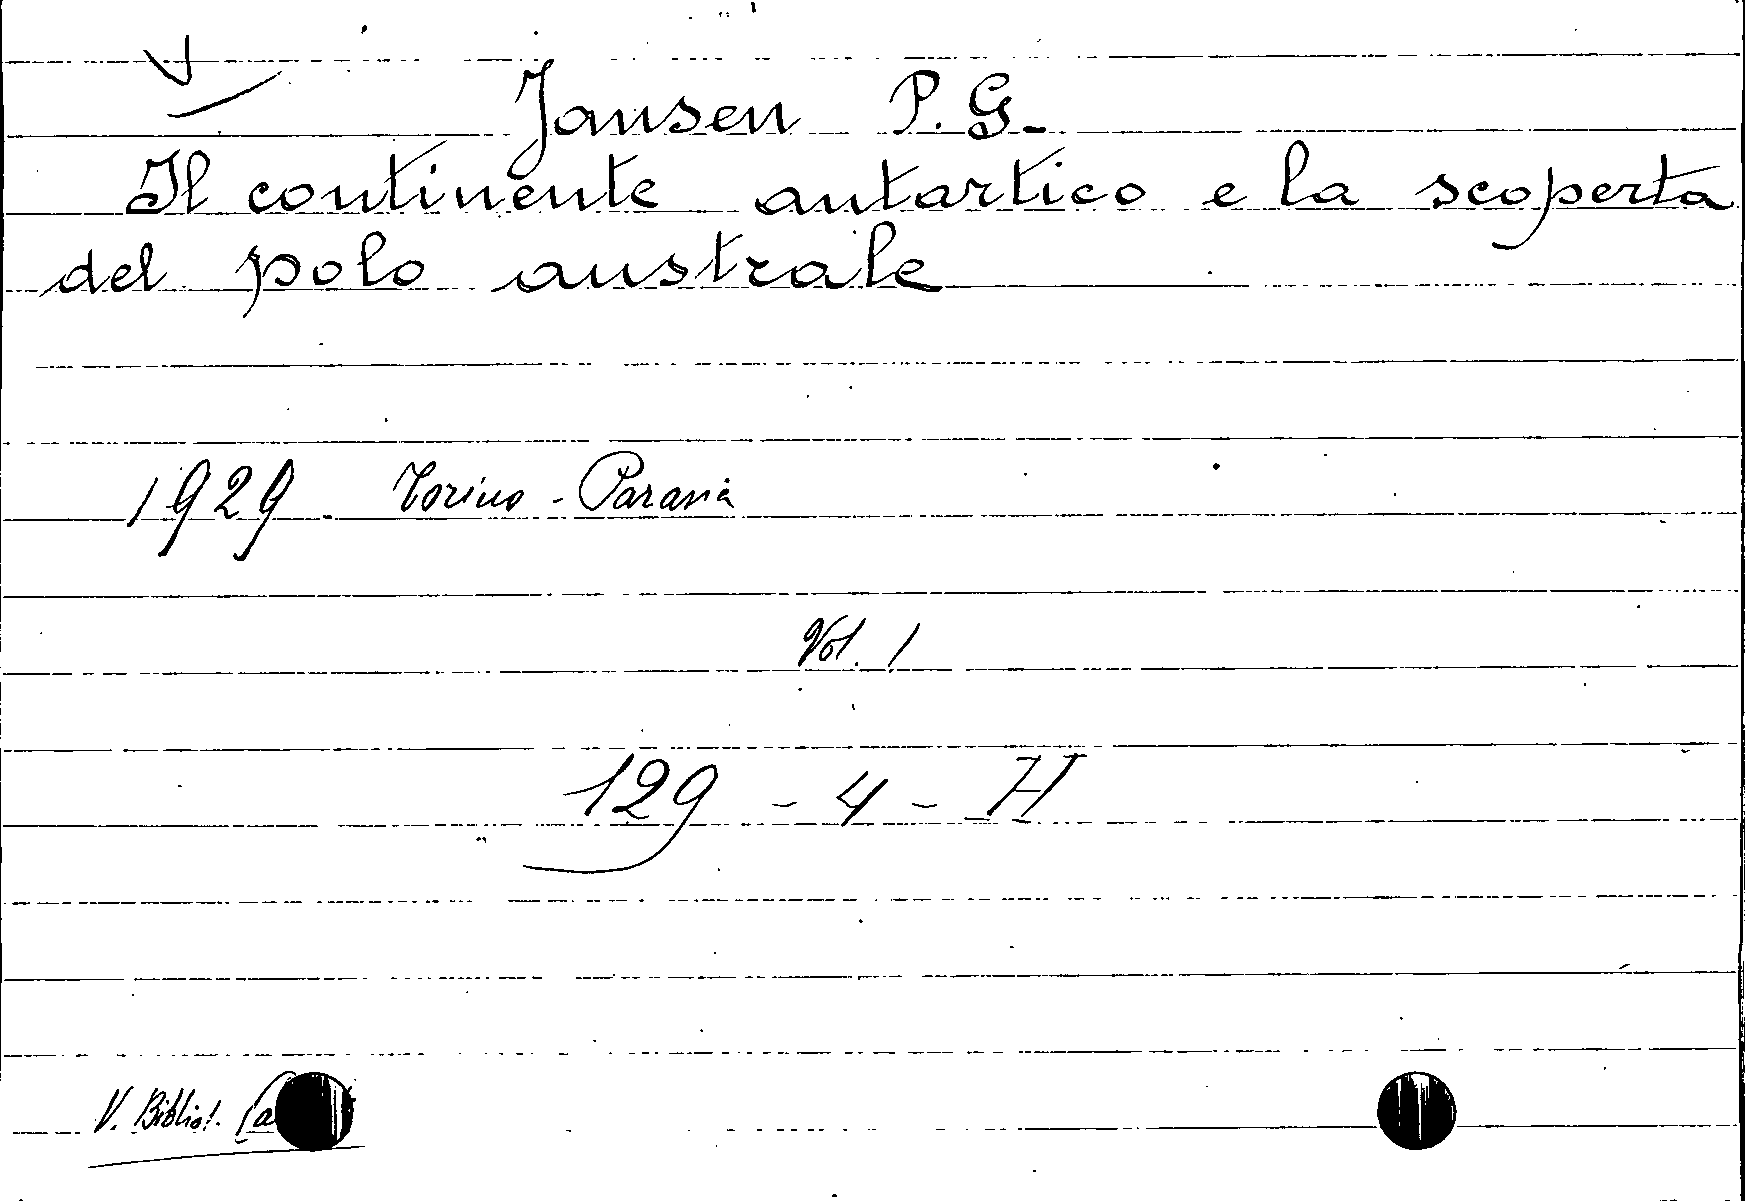 Jansen P. G.
Il continente antartico e la scoperta
del polo australe
1929. Torino - Paravia
Vol. 1
129 - 4 - H
V. Bibliot.